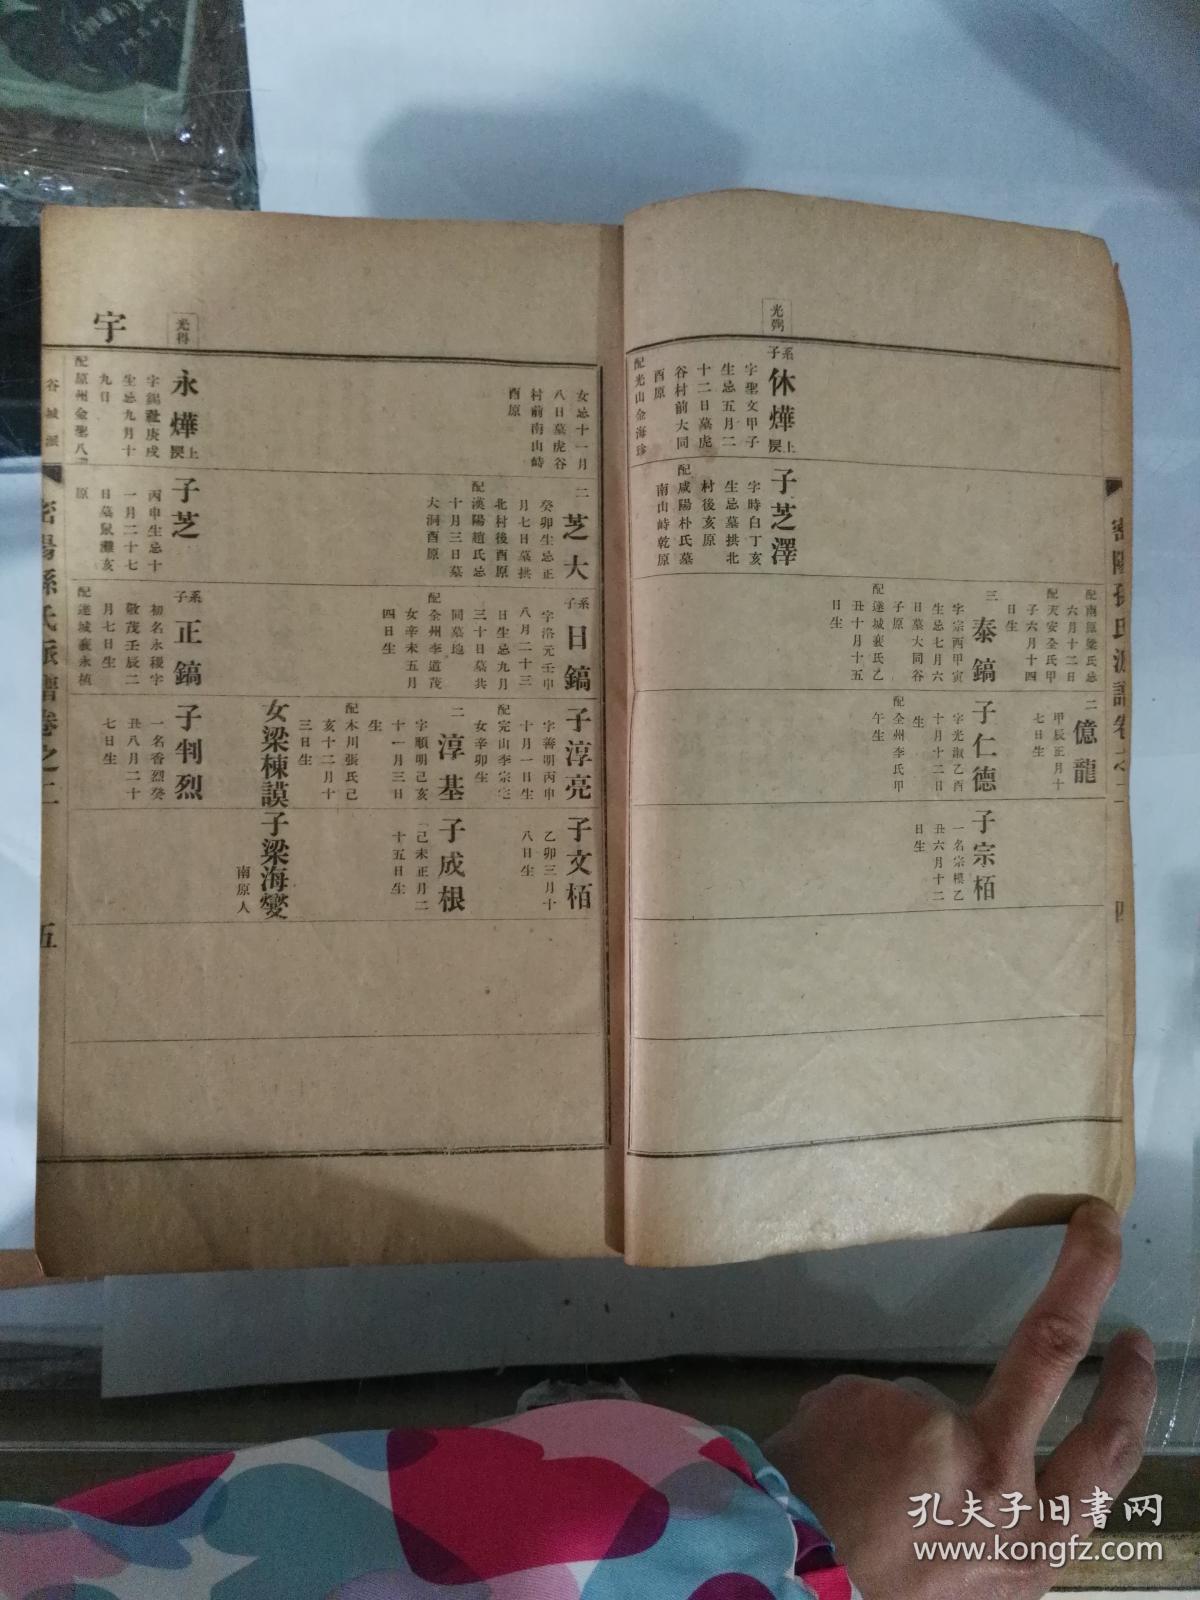 密陽孫氏派譜卷之二
四
配南原梁氏忌
六月十二日
配天安全氏甲
子六月十四
日生
三泰鎬
字宗西甲寅
生忌七月六
日墓大同谷
子原
配遂城裵氏乙
丑十月十五
日生
二億龍
甲辰正月十
七日生
子仁德
字光淑乙酉
十月十二日
生
配全州李氏甲
午生
子宗栢
一名宗模乙
丑六月十二
日生
光弼
系子休燁
上
字聖文甲子
生忌五月二
十二日墓虎
谷村前大同
酉原
配光山金海珍
子芝澤
字時白丁亥
生忌墓拱北
村後亥原
配咸陽朴氏墓
南山峙乾原
女忌十一月
八日墓虎谷
村前南山峙
酉原
二芝大
癸卯生忌正
月七日墓拱
北村後酉原
配漢陽趙氏忌
十月三日墓
大洞酉原
系子日鎬
字洛元壬申
八月二十三
日生忌九月
三十日墓共
同墓地
配全州李道茂
女辛未五月
四日生
子淳亮
字善明丙申
十月一日生
配完山李宗宅
女辛卯生
二淳基
字順明己亥
十一月三日
生
配木川張氏己
亥十二月十
三日生
女梁棟謨
子文栢
乙卯三月十
八日生
子成根
己未正月二
十五日生
子梁海燮
南原人
宇
光得
永燁
上
字錫祉庚戌
生忌九月十
九日
配原州金聖八
子芝
丙申生忌十
一月二十七
日墓鼠灘亥
原
系子正鎬
初名永稷字
敬茂壬辰二
月七日生
配遂城裵永植
子判烈
一名香烈癸
丑八月二十
七日生
谷城派
密陽孫氏派譜卷之二
五
孔夫子旧书网
www.kongfz.com